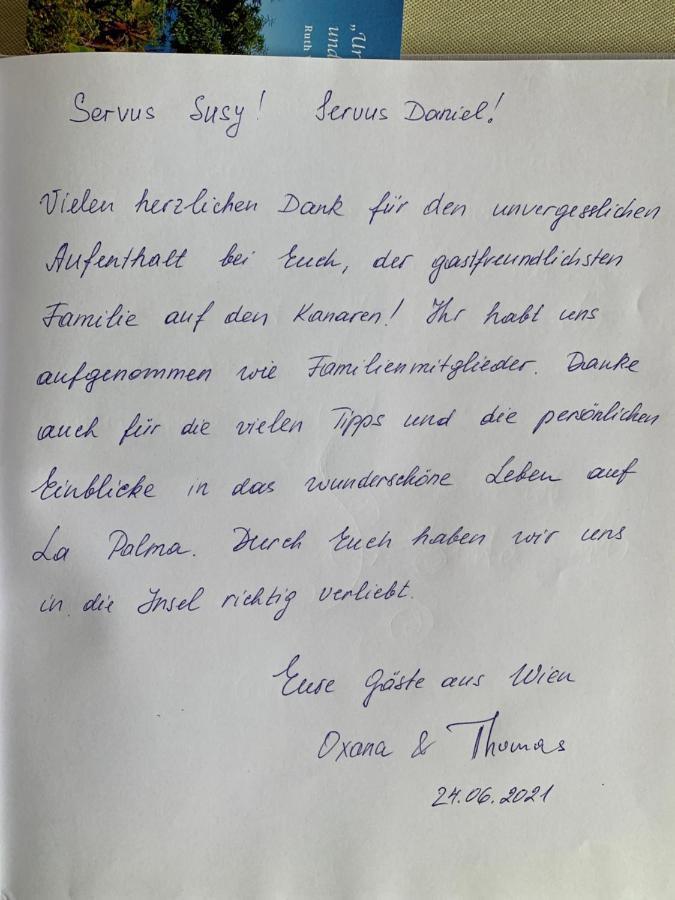 „Ur
und
Ruth
Servus Susy! Servus Daniel!
Vielen herzlichen Dank für den unvergesslichen
Aufenthalt bei Euch, der gastfreundlichsten
Familie auf den Kanaren! Ihr habt uns
aufgenommen wie Familienmitglieder. Danke
auch für die vielen Tipps und die persönlichen
Einblicke in das wunderschöne Leben auf
La Palma. Durch Euch haben wir uns
in die Insel richtig verliebt.
Eure Gäste aus Wien
Oxana & Thomas
24.06.2021